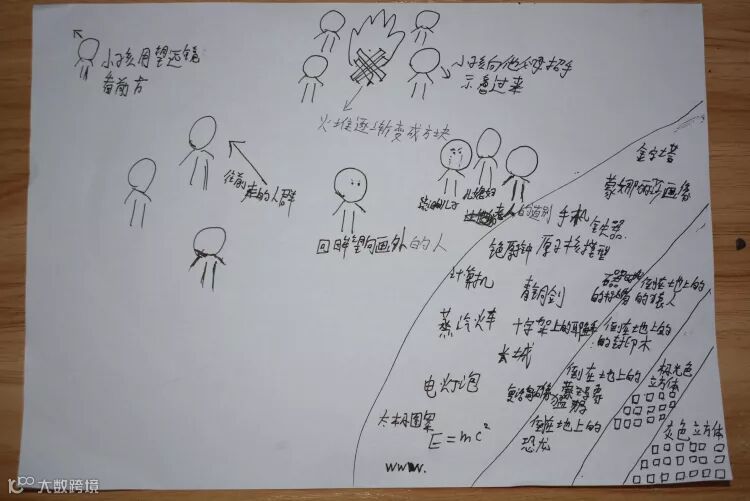 小孩用望远镜
看前方
小孩向他父母招手
示意过来
火堆逐渐变成方块
往前走的人群
回眸望向画外的人
老人的道别
金字塔
蒙娜丽莎画像
手机
铁器
绝厨钟
原子核模型
计算机
青铜剑
倒在地上的
的猿人
蒸汽火车
十字架上的耶稣
倒在地上的
的封印木
长城
电灯泡
倒在地上的
猛犸
极光色
立方体
太极图案
E=mc²
倒在地上的
恐龙
灰色立方体
www.
大数跨境